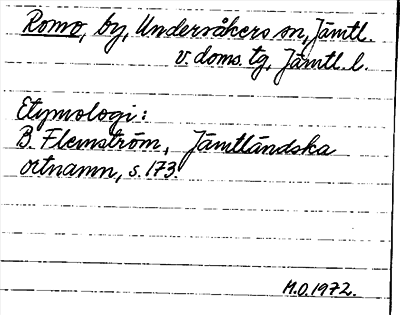 Romo, by, Undersåkers sn, Jämtl.
v. doms. tg, Jämtl. l.
Etymologi:
B. Flemström, Jämtländska
ortnamn, s. 173
M.O. 1972.